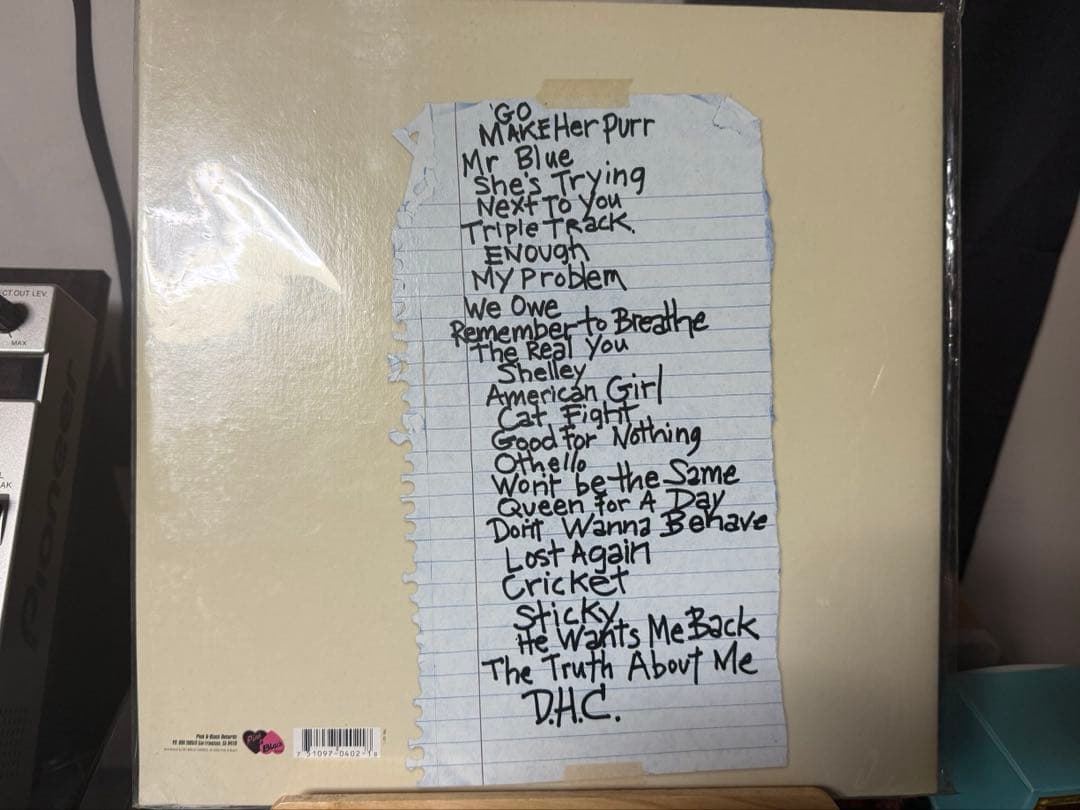 GO
MAKE Her Purr
Mr Blue
She's Trying
Next To You
Triple Track.
ENOUgh
My Problem
We Owe
Remember to Breathe
The Real You
Shelley
American Girl
Cat Fight
Good for Nothing
Othello
Won't be the Same
Queen for A Day
Don't Wanna Behave
Lost Again
Cricket
Sticky
He Wants Me Back
The Truth About Me
D.H.C.
Pink & Black Records
Pink & Black
7 51097-0402-1 8
CT OUT LEV.
MAX
AK
Pioneer